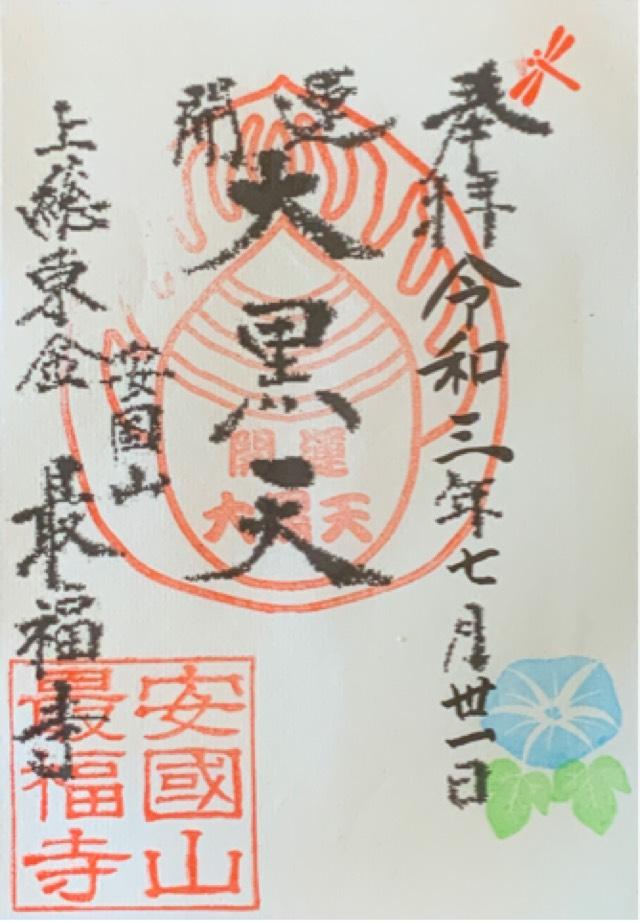 奉拝
令和三年七月卅一日
開運
大黒天
開運
大黒天
上総東金
安国山
最福寺
安國山
最福寺